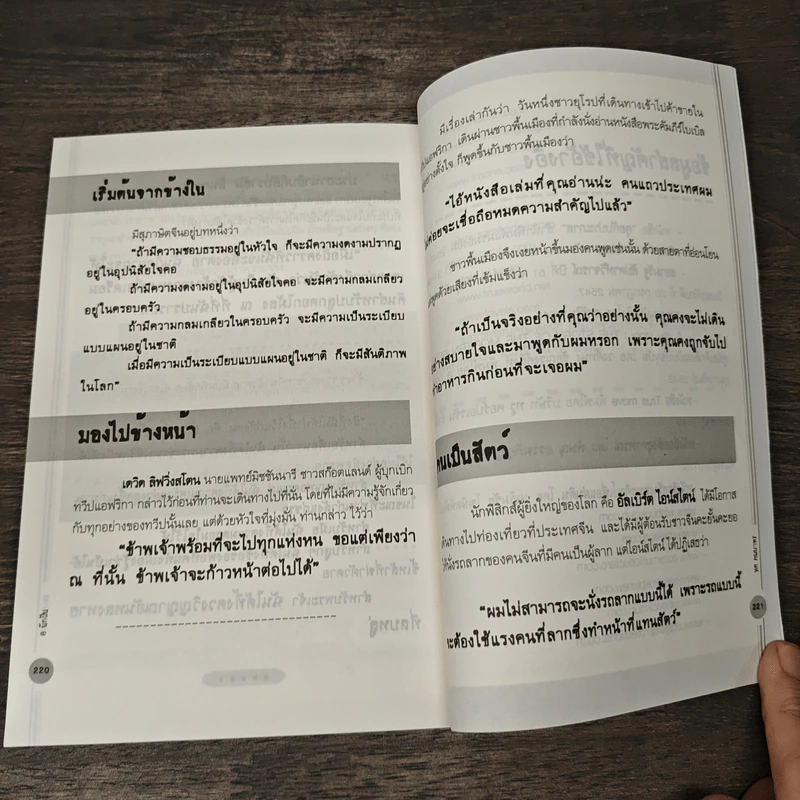 เริ่มต้นจากข้างใน
มีสุภาษิตจีนอยู่บทหนึ่งว่า
"ถ้ามีความชอบธรรมอยู่ในหัวใจ ก็จะมีความงดงามปรากฏ
อยู่ในอุปนิสัยใจคอ
ถ้ามีความงดงามอยู่ในอุปนิสัยใจคอ จะมีความกลมเกลียว
อยู่ในครอบครัว
ถ้ามีความกลมเกลียวในครอบครัว จะมีความเป็นระเบียบ
แบบแผนอยู่ในชาติ
เมื่อมีความเป็นระเบียบแบบแผนอยู่ในชาติ ก็จะมีสันติภาพ
ในโลก"
มองไปข้างหน้า
เดวิด ลิฟวิ่งสโตน นายแพทย์มิชชันนารี ชาวสก๊อตแลนด์ ผู้บุกเบิก
ทวีปแอฟริกา กล่าวไว้ก่อนที่ท่านจะเดินทางไปที่นั้น โดยที่ไม่มีความรู้จักเกี่ยว
กับทุกอย่างของทวีปนั้นเลย แต่ด้วยหัวใจที่มุ่งมั่น ท่านกล่าว ไว้ว่า
"ข้าพเจ้าพร้อมที่จะไปทุกแห่งหน ขอแต่เพียงว่า
ณ ที่นั้น ข้าพเจ้าจะก้าวหน้าต่อไปได้"
220
มีเรื่องเล่ากันว่า วันหนึ่งชาวยุโรปที่เดินทางเข้าไปค้าขายใน
แอฟริกา เดินผ่านชาวพื้นเมืองที่กำลังนั่งอ่านหนังสือพระคัมภีร์ไบเบิล
อย่างตั้งใจ ก็พูดขึ้นกับชาวพื้นเมืองว่า
"ไอ้หนังสือเล่มที่คุณอ่านน่ะ คนแถวประเทศผม
ค่อยจะเชื่อถือหมดความสำคัญไปแล้ว"
ชาวพื้นเมืองจึงเงยหน้าขึ้นมองคนพูดเช่นนั้น ด้วยสายตาที่อ่อนโยน
พูดด้วยเสียงที่เข้มแข็งว่า
"ถ้าเป็นจริงอย่างที่คุณว่าอย่างนั้น คุณคงจะไม่เดิน
อย่างสบายใจและมาพูดกับผมหรอก เพราะคุณคงถูกจับไป
ทำอาหารกินก่อนที่จะเจอผม"
คนเป็นสัตว์
นักฟิสิกส์ผู้ยิ่งใหญ่ของโลก คือ อัลเบิร์ต ไอน์สไตน์ ได้มีโอกาส
เดินทางไปท่องเที่ยวที่ประเทศจีน และได้มีผู้ต้อนรับชาวจีนคะยั้นคะยอ
ได้นั่งรถลากของคนจีนที่มีคนเป็นผู้ลาก แต่ไอน์สไตน์ ได้ปฏิเสธว่า
"ผมไม่สามารถจะนั่งรถลากแบบนี้ได้ เพราะรถแบบนี้
จะต้องใช้แรงคนที่ลากซึ่งทำหน้าที่แทนสัตว์"
221